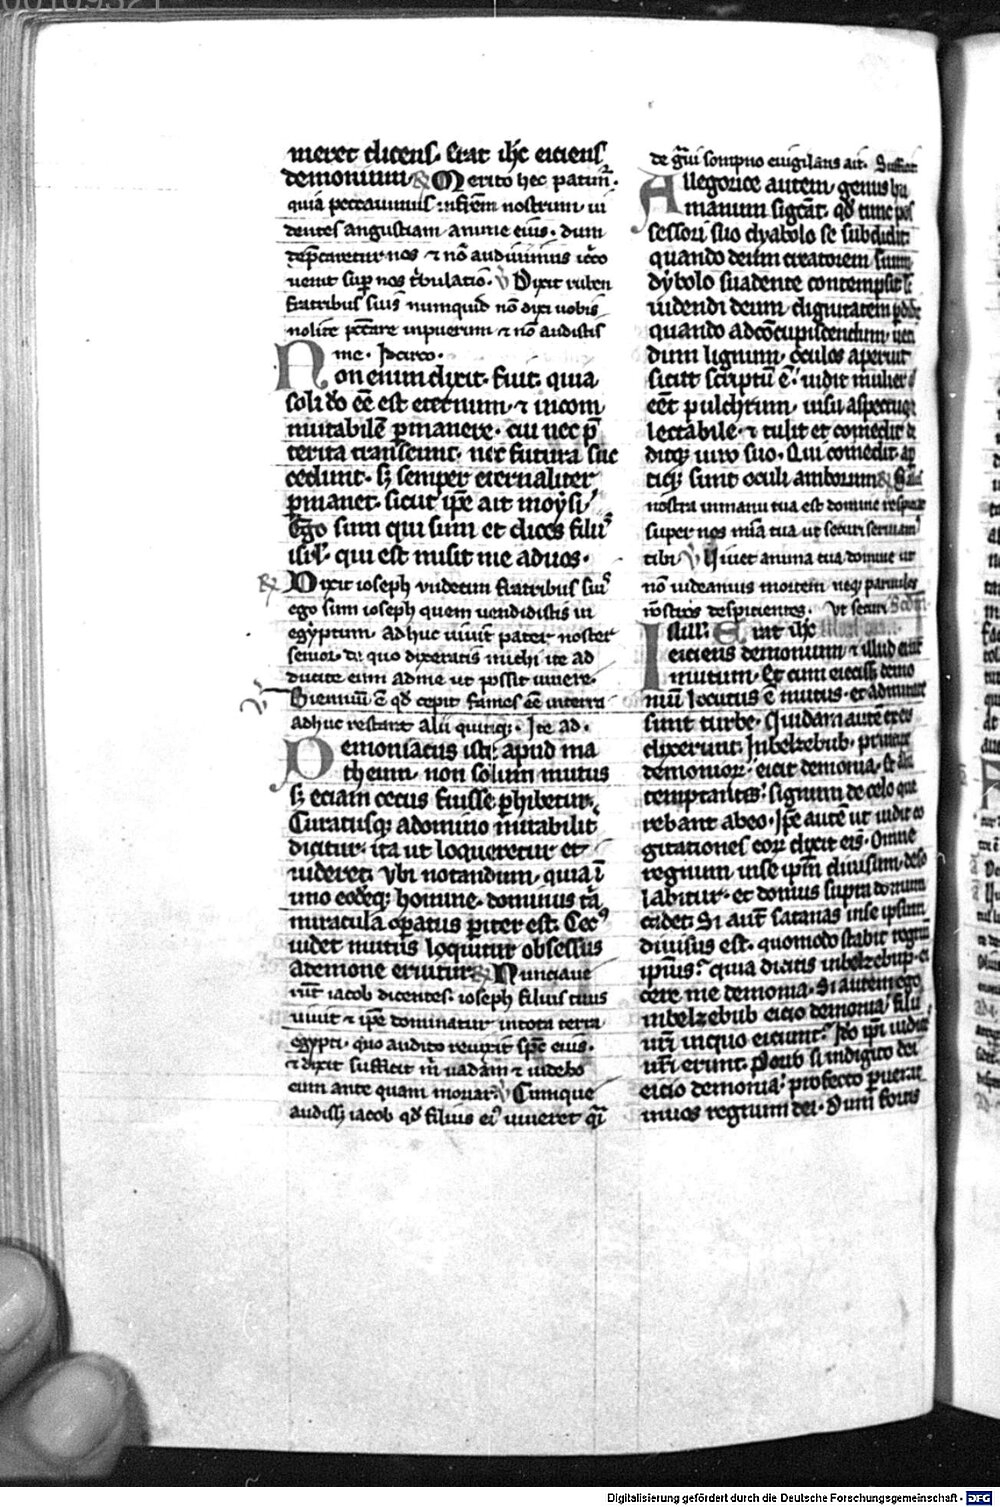 00109321
meret dicens. Erat ihc eiciens
demonium. R Merito hec patim̄.
quia peccauimus in frēm nostrum. ui
dentes angustiam anime eius. dum
dep̄caretur nos ⁊ nō audiuimus icc̄o
uenit suꝑ nos t̄bulatio. V Dixit ruben
fratribus suis numquid nō dixi uobis
nolite pccāre in puerum ⁊ nō audistis
me. Idcirco.
Non enim dixit. fuit. quia
soli dō eē est eternum. ⁊ incom
mutabilē ꝑmanere. cui nec p̄
terita transeunt. nec futura suc
cedunt. sꝫ semper eternaliter
ꝑmanet. sicut ip̄e ait moysi.
Ego sum qui sum et dices filiis
isrl̄. qui est misit me ad uos.
R Dixit ioseph undecim fratribus suis
ego sum ioseph quem uendidistis in
egyptum. adhuc uiuit pater noster
senior de quo dixeratis michi ite ad
ducite eum ad me ut possit uiuere.
V Bienniū ē qd̄ cepit fames eē in terra
adhuc restant alii quinqꝫ. Ite ad.
Demoniacus iste apud ma
theum. non solum mutus
sꝫ eciam cecus fuisse ꝑhibetur.
Curatusqꝫ a domino mirabilit̄
dicitur. ita ut loqueretur et
uideret. Vbi notandum. quia ī
uno eodēqꝫ homine. dominus t̄a
miracula oꝑatus ꝑiter est. Cecꝰ
uidet mutus loquitur obsessus
a demone eruitur. R Nunciaue
rūt iacob dicentes. ioseph filius tuus
uiuit ⁊ ip̄e dominatur in tota terra
egypti. quo audito reuixit sp̄c eius.
⁊ dixit sufficit m̄ uadam ⁊ uidebo
eum ante quam moriar. V Cumque
audissꝫ iacob qd̄ filius eiꝰ uiueret q̄i
de ḡui sompno euigilans ait. Sufficit
Allegorice autem. genus hu
manum sigcāt. qd̄ tunc pos
sessori suo dyabolo se subdidit.
quando deum creatorem suum
dybolo suadente contempsit
uidendi deum. dignitatem ꝑdidit
quando ad cōcupiscendum. ueti
dum lignum. oculos aperuit
sicut scriptū ē. uidit mulier
eēt pulchrum. uisu aspectuqꝫ
lectabile. ⁊ tulit et comedit
ditqꝫ uiro suo. Qui comedit. ap
tiqꝫ sunt oculi amborum. R Salus
nostra in manu tua est domine respice
super nos mīa tua ut securi seruiam
tibi. V Viuet anima tua domine ut
nō uideamus mortem neqꝫ paruulos
nostros despicientes. Vt securi
In illo Erat ihc
eiciens demonium ⁊ illud erat
mutum. Et cum eiecissꝫ demo
niū locutus ē mutus. et admirate
sunt turbe. Quidam autē ex eis
dixerunt. In belzebub. principe
demonioꝝ. eicit demonia. Et alii
temptantes. signum de celo que
rebant ab eo. Ip̄e autē ut uidit co
gitationes eoꝝ dixit eis. Omne
regnum in se ip̄m diuisum. deso
labitur. et domus supra domum
cadet. Si aut̄ satanas in se ipsum
diuisus est. quomodo stabit regnū
ipius. quia dicitis in belzebub. ei
cere me demonia. Si autem ego
in belzebub eicio demonia. filii
ur̄i in quo eiciunt. Ido ip̄i iudices
ur̄i erunt. Porro si in digito dei
eicio demonia. profecto ꝑuenit
in uos regnum dei. Dum fortis
Digitalisierung gefördert durch die Deutsche Forschungsgemeinschaft - DFG